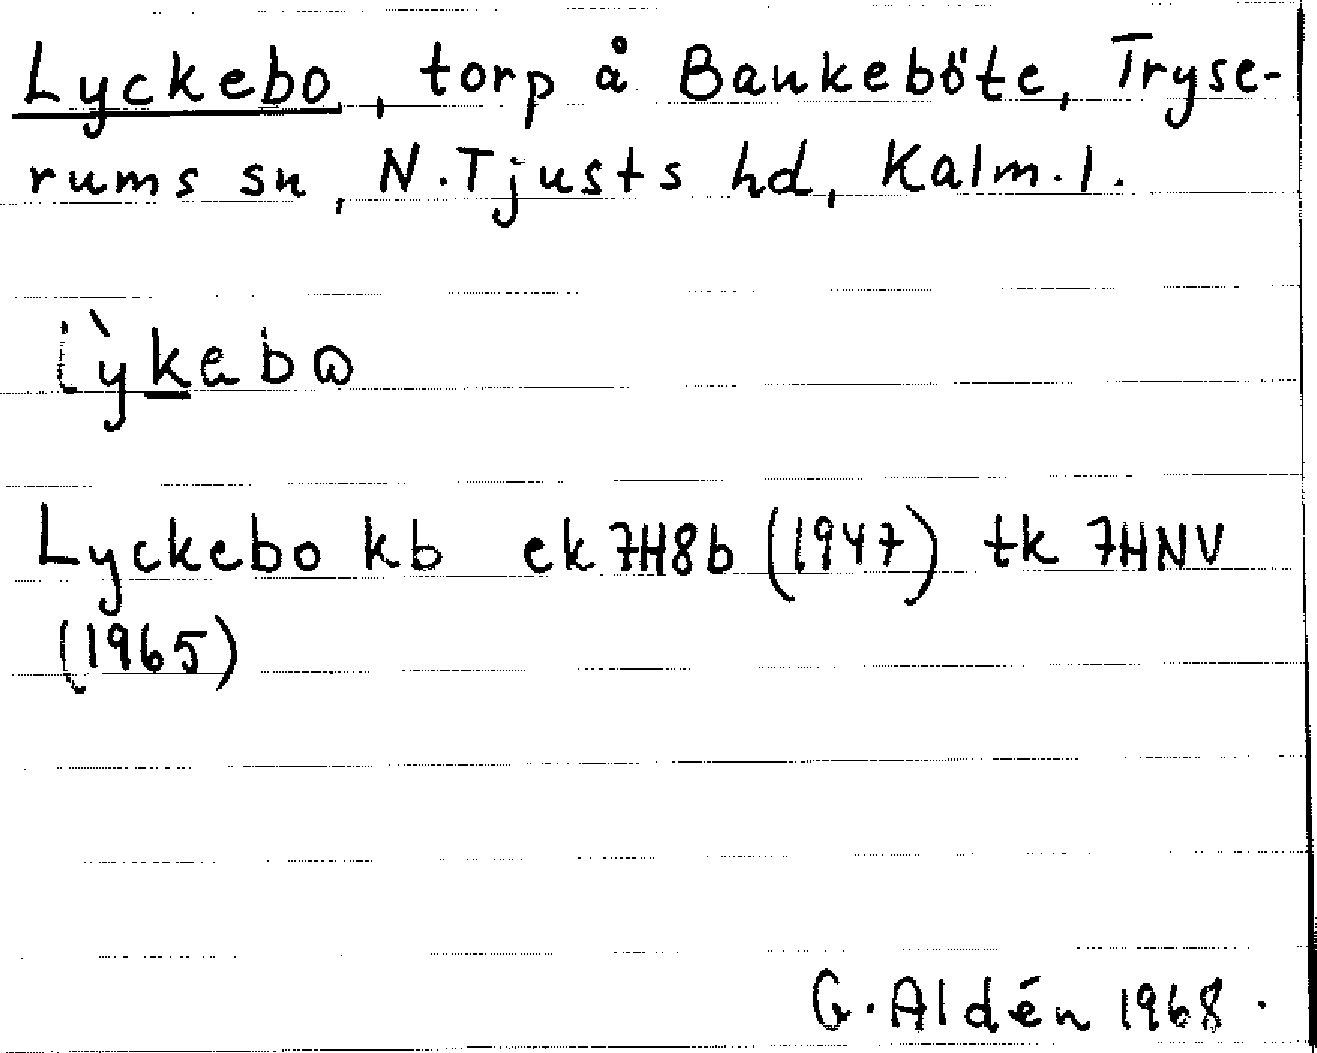 Lyckebo, torp å Baukeböte, Tryse-
rums sn, N. Tjusts hd, Kalm. l.
Lyckebo kb ek 7H8b (1947) tk 7HNV
(1965)
G. Aldén 1968.